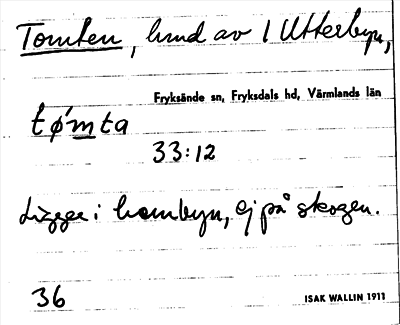 Tomten, hmd av 1 Utterbyn,
Fryksände sn, Fryksdals hd, Värmlands län
tǿmta
33:12
Ligger i hembyn, ej på skogen.
36
ISAK WALLIN 1911